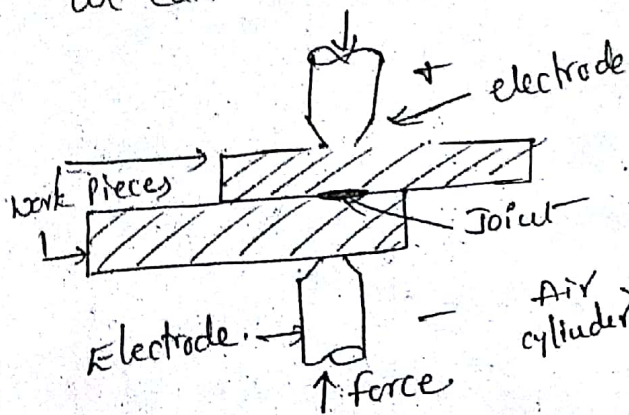 +
electrode
work pieces
Joint
Electrode.
-
Air
cylinder
force